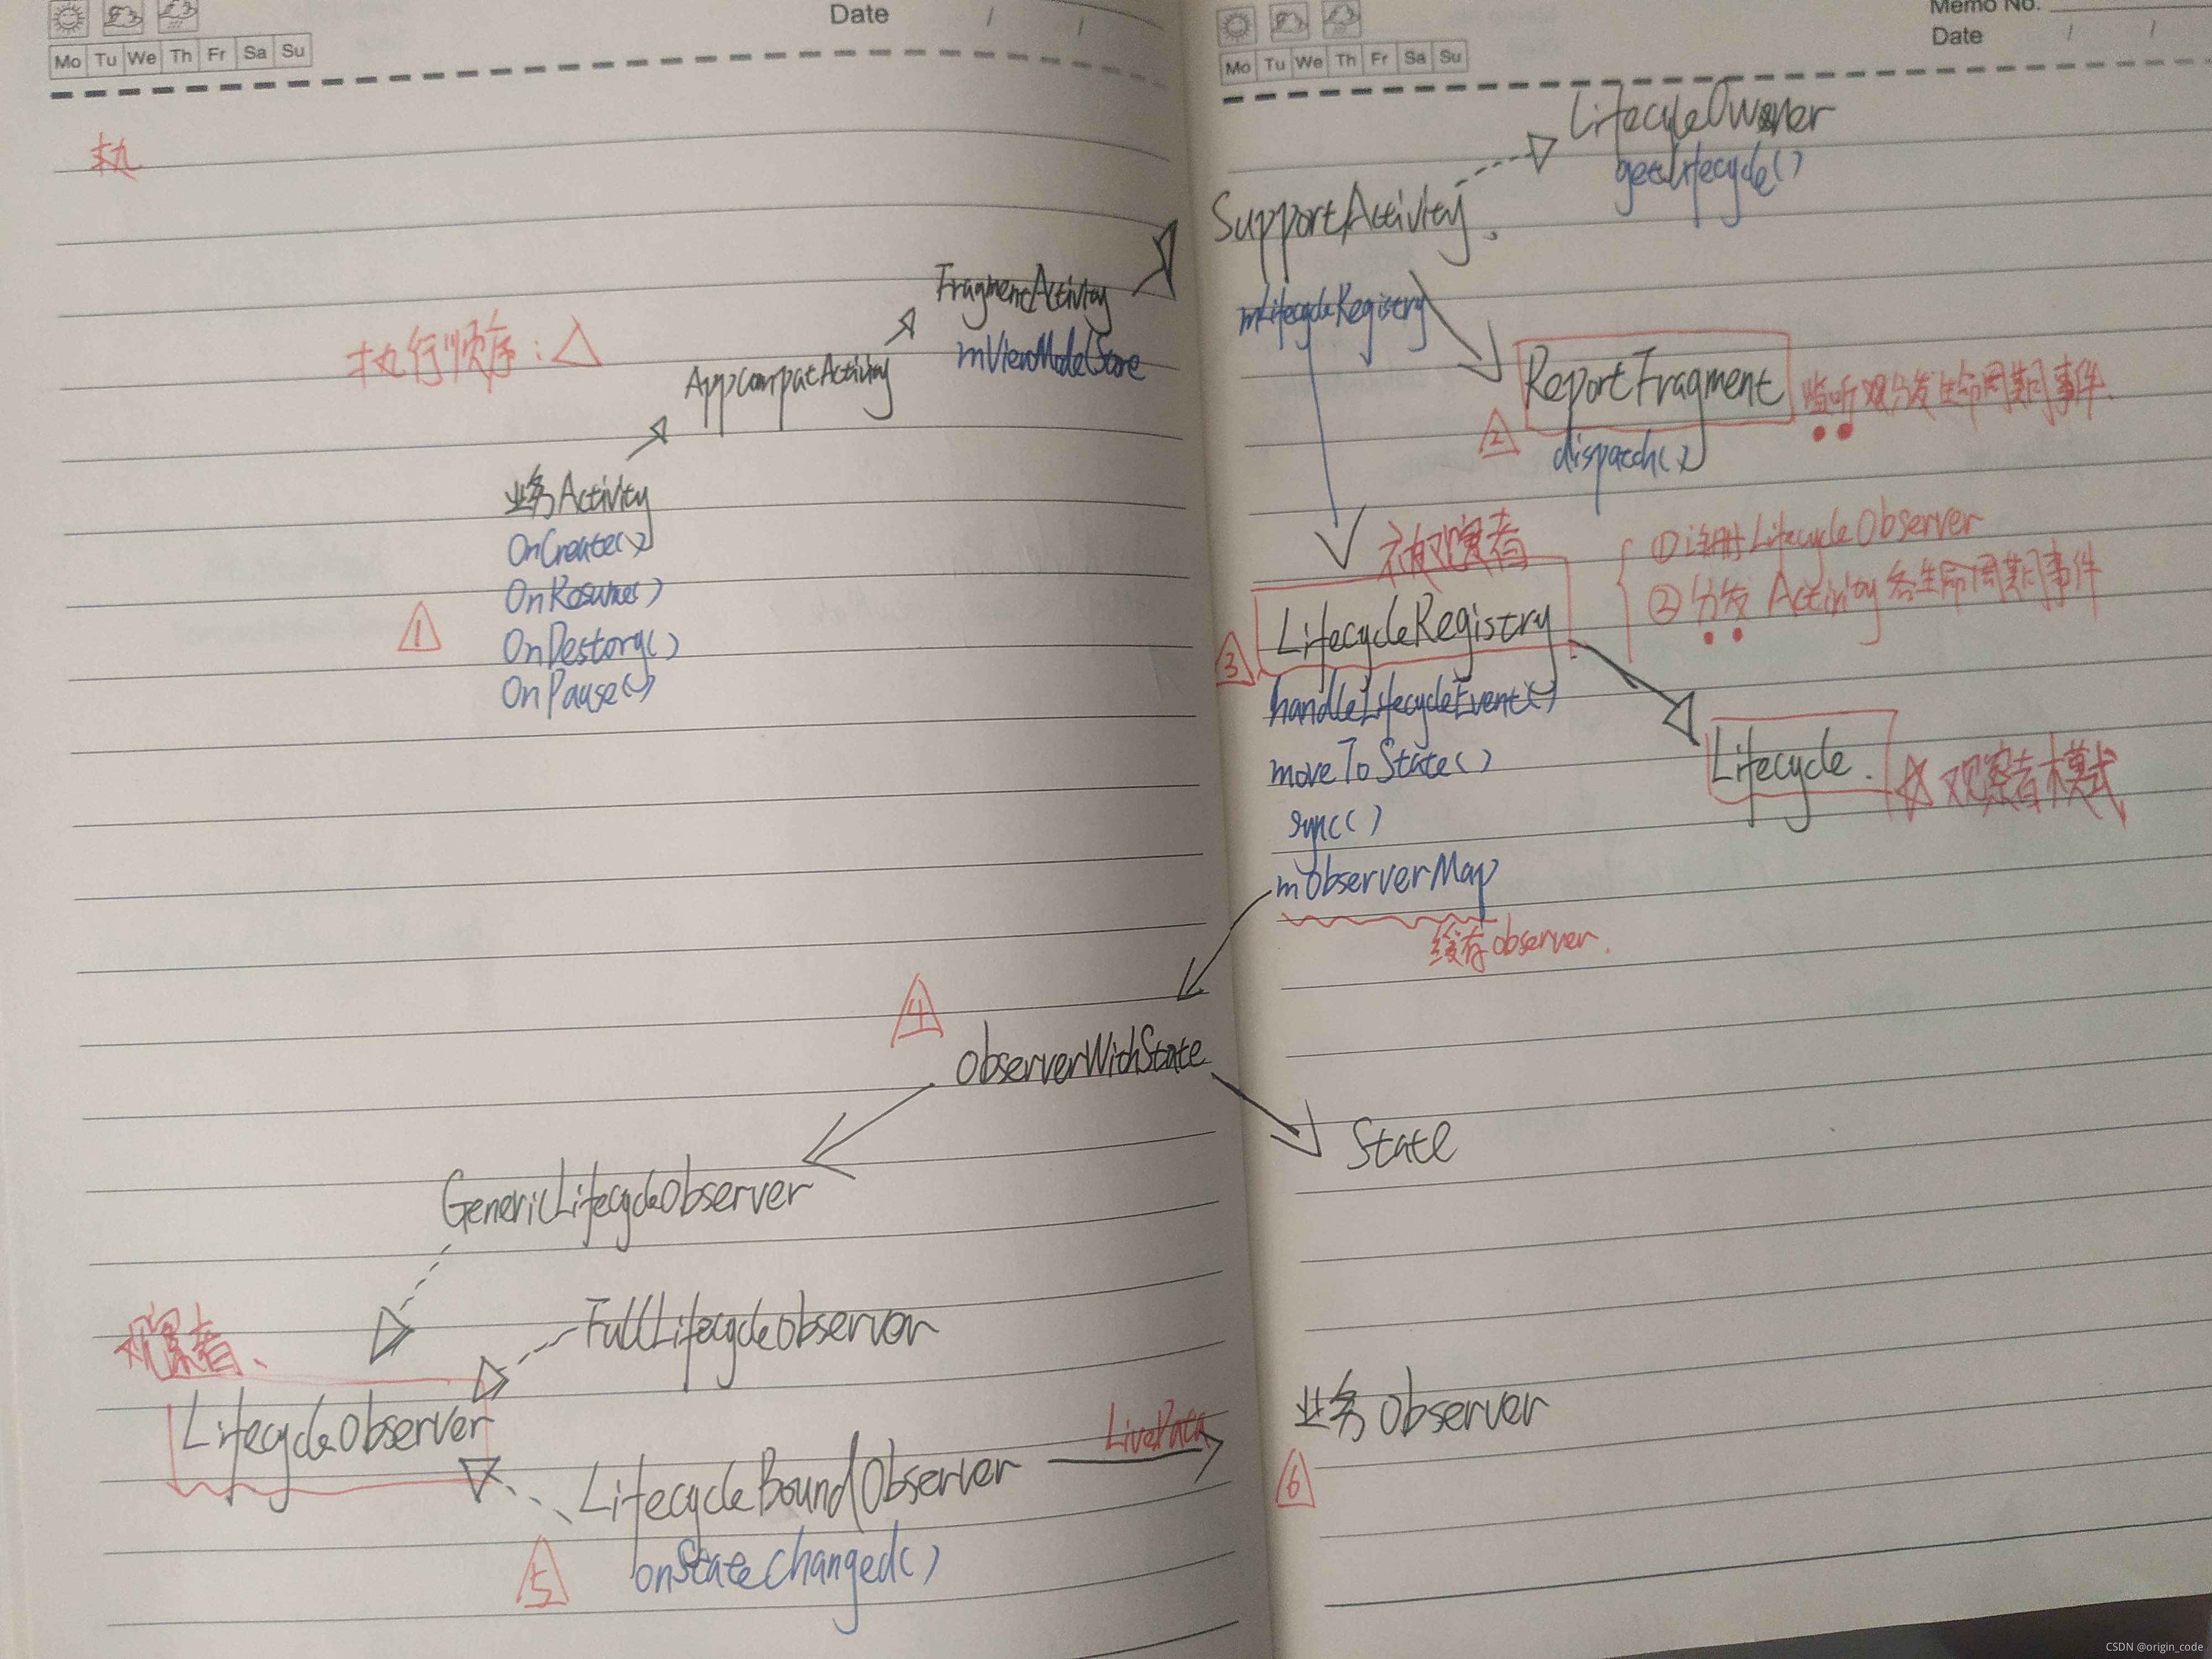 Date / /
Mo Tu We Th Fr Sa Su
执
执行顺序:
FragmentActivity
mViewModelStore
AppCompatActivity
业务Activity
OnCreate()
OnResume()
OnDestory()
OnPause()
1
4
observerWithState
GenericLifecycleObserver
观察者、
FullLifecycleobserver
LifecycleObserver
LifecycleBoundObserver
LiveData
onStateChanged()
5
Memo No.
Date / /
Mo Tu We Th Fr Sa Su
LifecyleOwner
getLifecycle()
SupportActivity
mLifecycleRegistry
ReportFragment
监听观分发生命周期事件.
2
dispatch()
被观察者
①注册LifecycleObserver
②分发 Activity各生命周期事件
LifecycleRegistry
3
handleLifecycleEvent()
moveToState()
sync()
mObserverMap
缓存observer.
Lifecycle.
观察者模式
State
业务observer
6
CSDN @origin_code